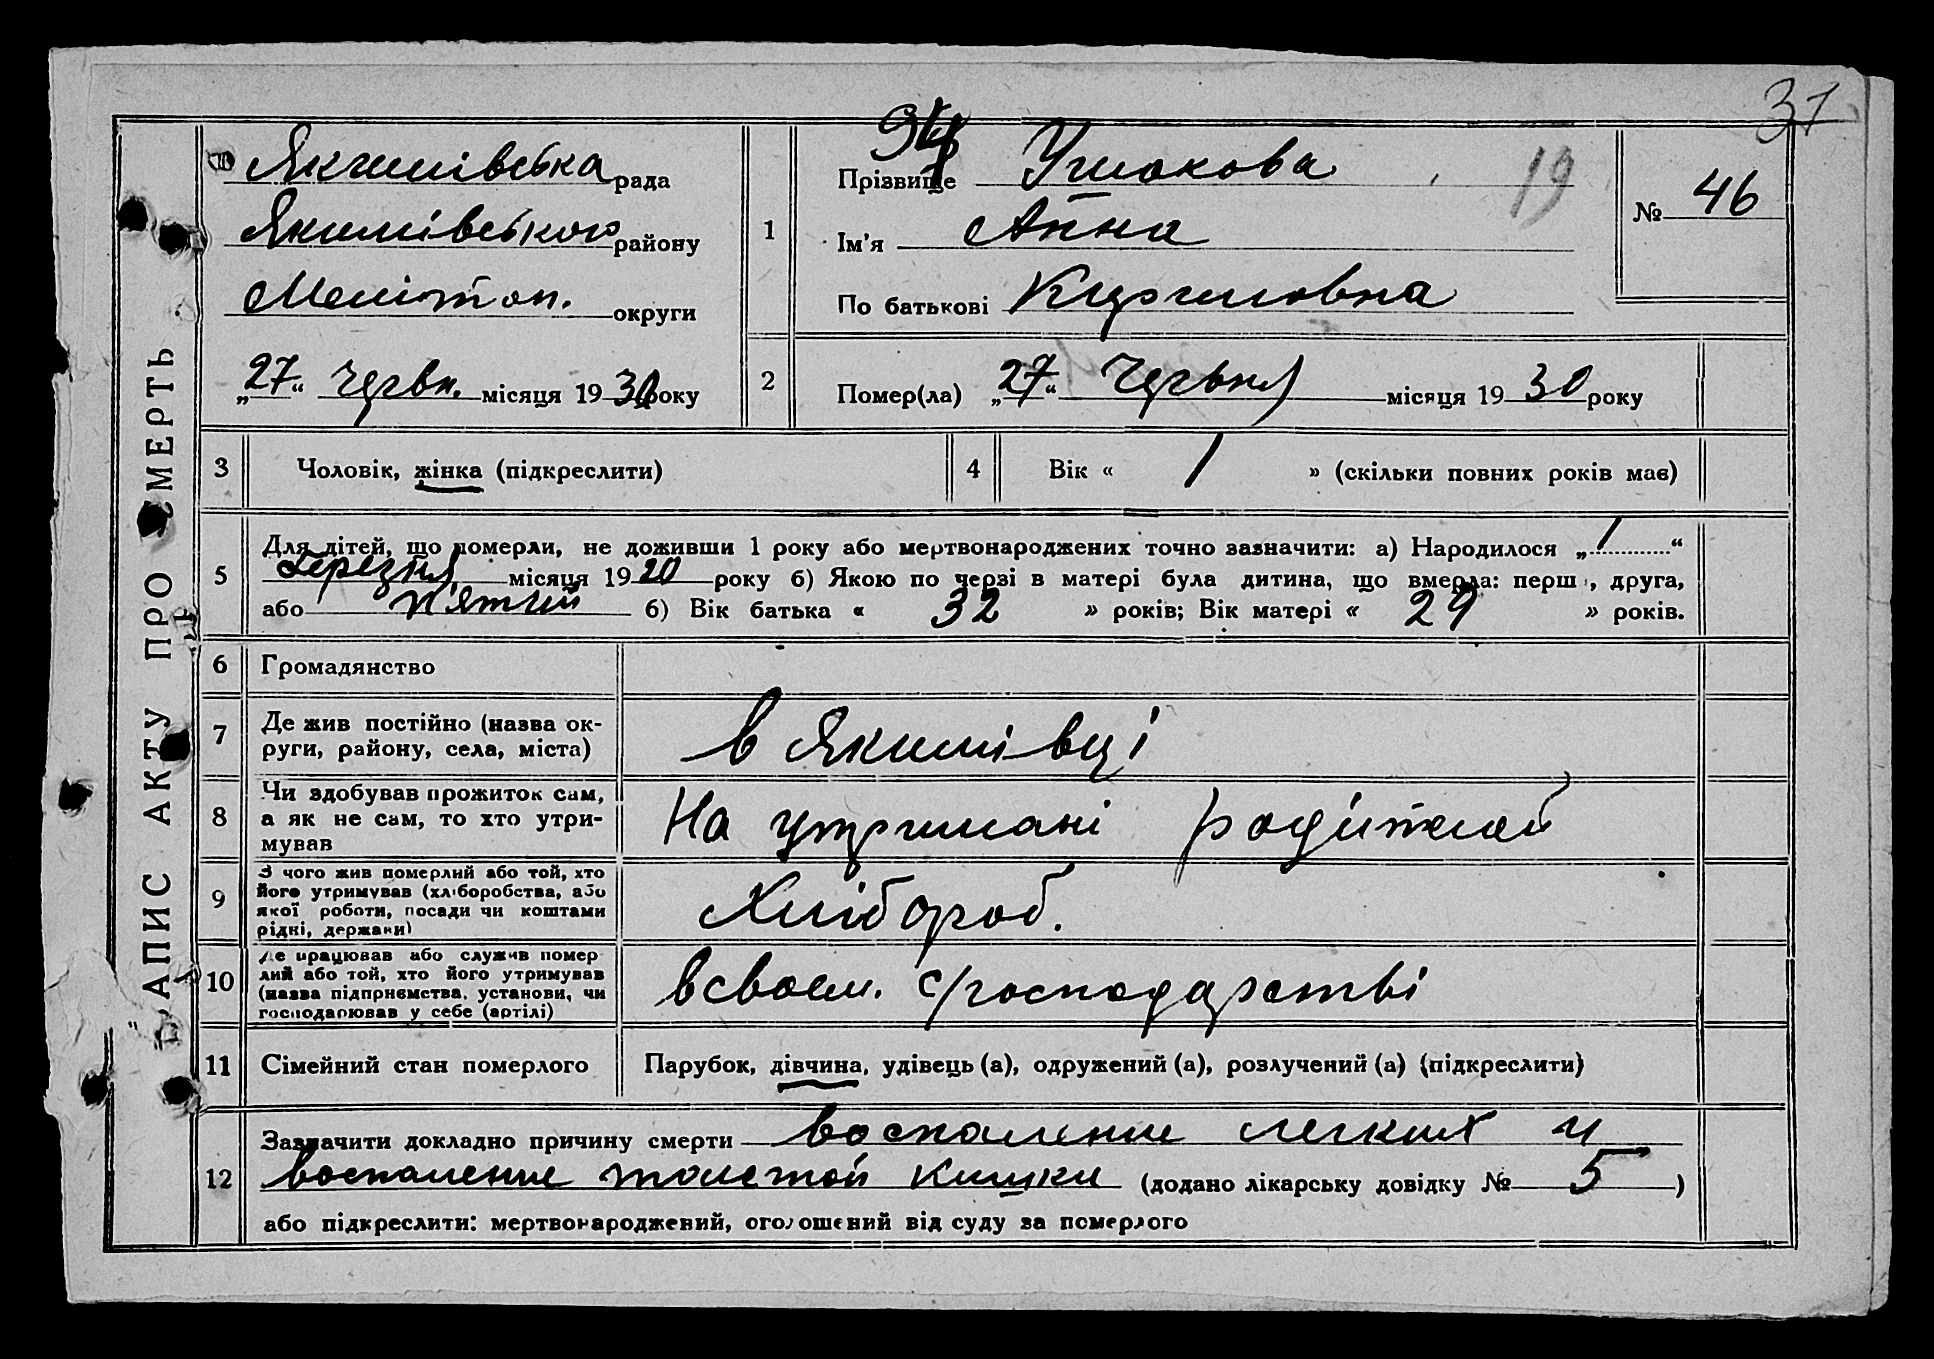 37
ЗАПИС АКТУ ПРО СМЕРТЬ
Якимівська рада
Якимівського району
Меліtоп. округи
„27“ червн. місяця 1930 року
1
Прізвище Ушакова
19
Ім'я Анна
По батькові
№ 46
2
Помер(ла) „27“ червня місяця 1930 року
3
Чоловік, жінка (підкреслити)
4
Вік « 1 » (скільки повних років має)
5
Для дітей, що померли, не доживши 1 року або мертвонароджених точно зазначити: а) Народилося „1“
березня місяця 1920 року б) Якою по черзі в матері була дитина, що вмерла: перша, друга,
або п'ятий б) Вік батька « 32 » років; Вік матері « 29 » років.
6
Громадянство
7
Де жив постійно (назва ок-
руги, району, села, міста)
в Якимівці
8
Чи здобував прожиток сам,
а як не сам, то хто утри-
мував
На утримані родителей
9
З чого жив померлий або той, хто
його утримував (хліборобства, або
якої роботи, посади чи коштами
рідні, держави)
Хлібороб.
10
Де працював або служив помер
лий або той, хто його утримував
(назва підприємства, установи, чи
господарював у себе (артілі)
в своем. с/господарстві
11
Сімейний стан померлого
Парубок, дівчина, удівець (а), одружений (а), розлучений (а) (підкреслити)
12
Зазначити докладно причину смерти воспаление легких и
воспаление толстой кишки (додано лікарську довідку № 5 )
або підкреслити: мертвонароджений, оголошений від суду за померлого